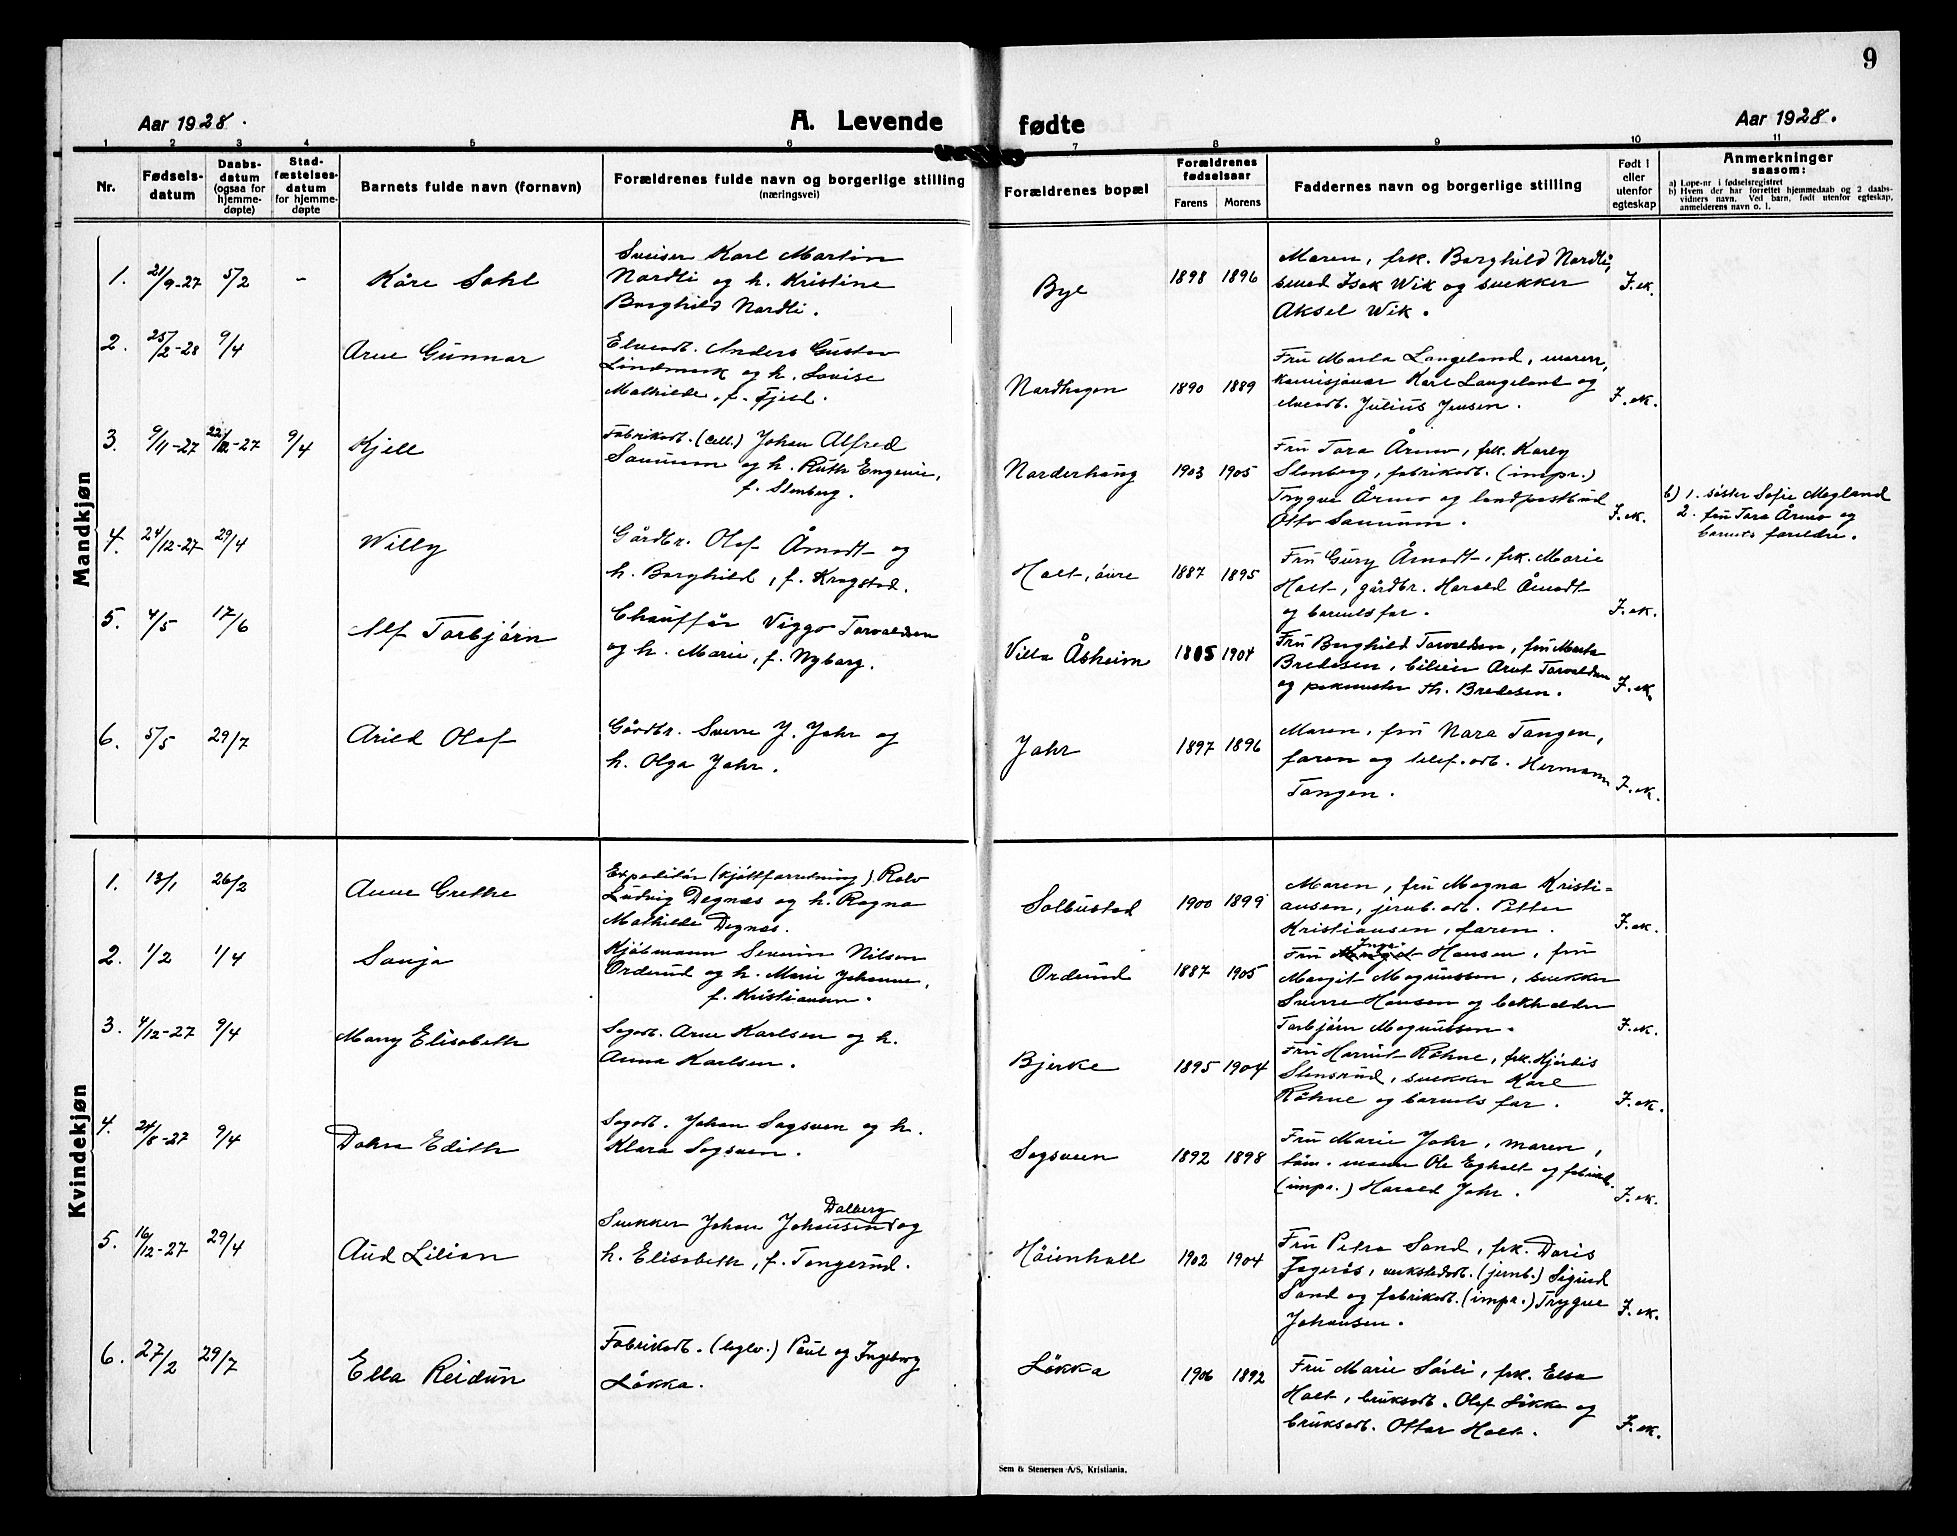 9
Aar 1928.
A. Levende
fødte
Aar 1928.
1 2 3 4 5 6 7 8 9 10 11
Nr.
Fødsels-
datum
Daabs-
datum
(ogsaa for
hjemme-
døpte)
Stad-
fæstelses-
datum
for hjemme-
døpte
Barnets fulde navn (fornavn)
Forældrenes fulde navn og borgerlige stilling
(næringsvei)
Forældrenes bopæl
Forældrenes
fødselsaar
Farens
Morens
Faddernes navn og borgerlige stilling
Født i
eller
utenfor
egteskap
Anmerkninger
saasom:
a) Løpe-nr i fødselsregistret
b) Hvem der har forrettet hjemmedaab og 2 daabs-
vidners navn. Ved barn, født utenfor egteskap,
anmelderens navn o. l.
Mandkjøn
1. 21/9-27 5/2 - Kåre Sahl
Sveiser Karl Martin
Nordli og h. Kristine
Borghild Nordli.
Bye 1898 1896
Moren, frk. Borghild Nordli,
smed Isak Wik og snekker
Aksel Wik.
I. ek.
2. 25/2-28 9/4 Arne Gunnar
Elvearb. Anders Gustav
Lindmark og h. Lovise
Mathilde, f. Fjeld.
Nordhagen 1890 1889
Fru Marta Langeland, moren,
Karl Langeland og
elvearb. Julius Jensen.
I. ek.
3. 9/11-27 22/12-27 9/4 Kjell
Fabrikarb. (cell.) Johan Alfred
og h. Ruth Engenie,
f. Stenberg.
Norderhaug 1903 1905
Fru Tora Årmo, frk. Karly
Stenberg, fabrikarb. (impr.)
Trygve Årmo og landpostbud
Otto
I. ek.
b) 1. søster Sofie Mogland
2. fru Tora Årmo og
barnets foreldre.
4. 24/12-27 29/4 Willy
Gårdbr. Olaf Åmodt og
h. Borghild, f. Krogstad.
Holt, övre 1887 1895
Fru Gury Åmodt, frk. Marie
Holt, gårdbr. Harald Åmodt
og barnets far.
I. ek.
5. 4/5 17/6 Alf Torbjörn
Chaufför Viggo Torvaldsen
og h. Marie, f. Nyborg.
Villa Åsheim 1904
Fru Borghild Torvaldsen, fru Marta
Bredesen, Arnt Torvaldsen
og Th. Bredesen.
I. ek.
6. 5/5 29/7 Arild Olaf
Gårdbr. Sverre J. Jahr og
h. Olga Jahr.
Jahr 1897 1896
Moren, fru Nora Tangen,
faren og telef.arb. Hermann
Tangen.
I. ek.
Kvindekjøn
1. 13/1 26/2 Anne Grethe
Expeditör (kjöttforretning) Rolv
Ludvig Degnæs og h. Ragna
Mathilde Degnæs.
Solbustad 1900 1899
Moren, fru Magna Kristi-
ansen, jernb.arb. Petter
Kristiansen, faren.
I. ek.
2. 1/2 1/4 Sonja
Kjöbmann Severin Nilsen
Orderud og h. Marie Johanne,
f. Kristiansen.
Orderud 1887 1905
Fru Inga Hansen, fru
Margit Magnussen, snekker
Sverre Hansen og bokholder
Torbjörn Magnussen.
I. ek.
3. 4/12-27 9/4 Mary Elisabeth
Sagarb. Arne Karlsen og h.
Anna Karlsen.
Bjerke 1895 1904
Fru Harriet Röhne, frk. Hjördis
Stensrud, snekker Karl
Röhne og barnets far.
I. ek.
4. 24/8-27 9/4 Edith
Sagarb. Johan Sagsveen og h.
Klara Sagsveen.
Sagsveen 1892 1898
Fru Marie Jahr, moren,
töm.mann Ole Egholt og fabrikarb.
(impr.) Harald Jahr.
I. ek.
5. 16/12-27 29/4 Aud Lilian
Dalberg
Snekker Johan Johansen og
h. Elisabeth, f. Tangerud.
Höienhall 1902 1904
Fru Petra Sand, frk. Doris
Fagerås, verkstedarb. (jernb.) Sigurd
Sand og fabrikarb. (impr.) Trygve
Johansen.
I. ek.
6. 27/2 29/7 Ella Reidun
Fabrikarb. (teglv.) Paul og Ingeborg
Lökka.
Lökka 1906 1892
Fru Marie Sörli, frk. Elsa
Holt, bruksarb. Olaf Lökka og
bruksarb. Ottar Holt.
I. ek.
Sem & Stenersen A/S, Kristiania.